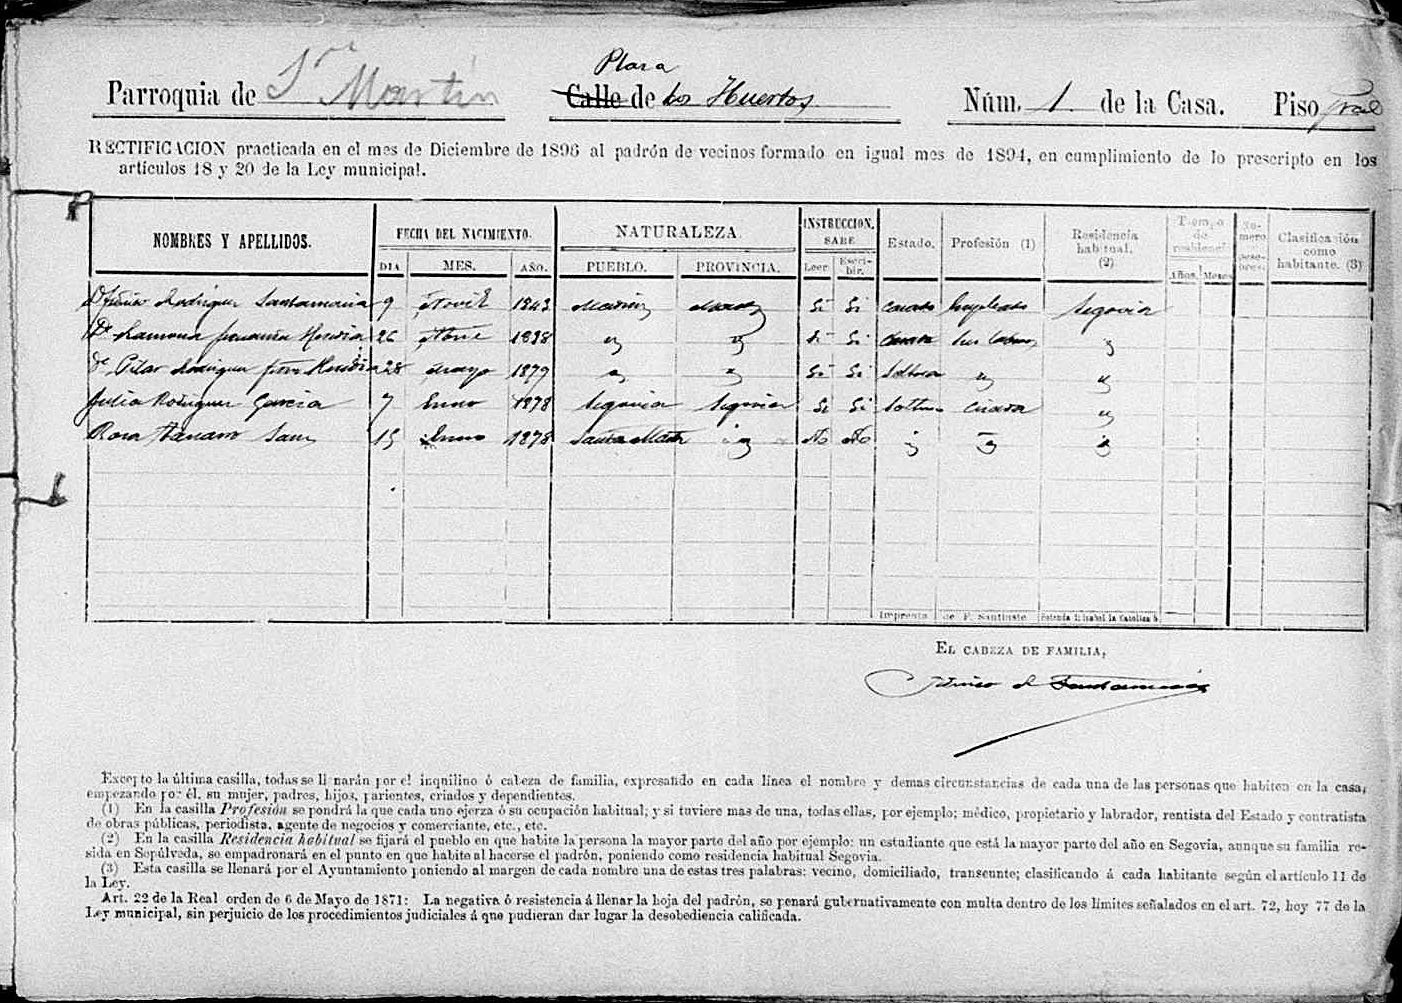 Parroquia de Sn Martin
Plaza
Calle de los Huertos
Núm. 1. de la Casa. Piso Pral
RECTIFICACION practicada en el mes de Diciembre de 1896 al padrón de vecinos formado en igual mes de 1894, en cumplimiento de lo prescripto en los
artículos 18 y 20 de la Ley municipal.
NOMBRES Y APELLIDOS. FECHA DEL NACIMIENTO. NATURALEZA. INSTRUCCION. SABE Estado. Profesión (1) Residencia habitual. (2) Tiempo de residencia Clasificación como habitante. (3)
DIA MES. AÑO. PUEBLO. PROVINCIA. Leer Escribir. Años. Meses
Rodriguez Santamaria 9 1843 Madrid Si Si casado Empleado Segovia
Da Ramona Heredia 26 1838 " " Si Si casada Sus labores "
Da Pilar Rodriguez Heredia 28 Mayo 1879 " " Si Si Soltera " "
Julia Rodriguez Garcia 7 Enero 1878 Segovia Segovia Si Si Soltera Criada "
Rosa Sanz 15 Enero 1878 Santa Maria " No No " " "
Imprenta de F. Santiuste Potenda I: Isabel la Catolica
EL CABEZA DE FAMILIA,
Santamaria
Excepto la última casilla, todas se llenarán por el inquilino ó cabeza de familia, expresando en cada línea el nombre y demas circunstancias de cada una de las personas que habiten en la casa,
empezando por él, su mujer, padres, hijos, parientes, criados y dependientes.
(1) En la casilla Profesión se pondrá la que cada uno ejerza ó su ocupación habitual; y si tuviere mas de una, todas ellas, por ejemplo; médico, propietario y labrador, rentista del Estado y contratista
de obras públicas, periodista, agente de negocios y comerciante, etc., etc.
(2) En la casilla Residencia habitual se fijará el pueblo en que habite la persona la mayor parte del año por ejemplo: un estudiante que está la mayor parte del año en Segovia, aunque su familia re-
sida en Sepúlveda, se empadronará en el punto en que habite al hacerse el padrón, poniendo como residencia habitual Segovia.
(3) Esta casilla se llenará por el Ayuntamiento poniendo al margen de cada nombre una de estas tres palabras: vecino, domiciliado, transeunte; clasificando á cada habitante según el artículo 11 de
la Ley.
Art. 22 de la Real orden de 6 de Mayo de 1871: La negativa ó resistencia á llenar la hoja del padrón, se penará gubernativamente con multa dentro de los límites señalados en el art. 72, hoy 77 de la
Ley municipal, sin perjuicio de los procedimientos judiciales á que pudieran dar lugar la desobediencia calificada.